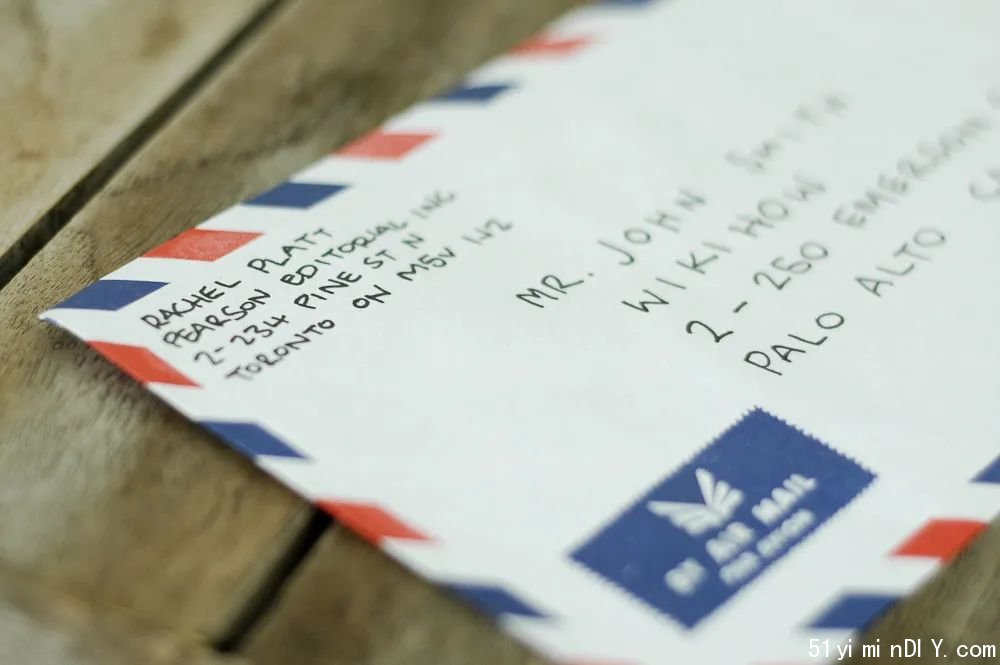 RACHEL PLATT
PEARSON EDITORIAL INC
2-234 PINE ST N
TORONTO ON M5V 1H2
MR. JOHN SMITH
WIKIHOW
2-250 EMERSON
PALO ALTO CA
BY AIR MAIL
PAR AVION
51yiminDIY.com